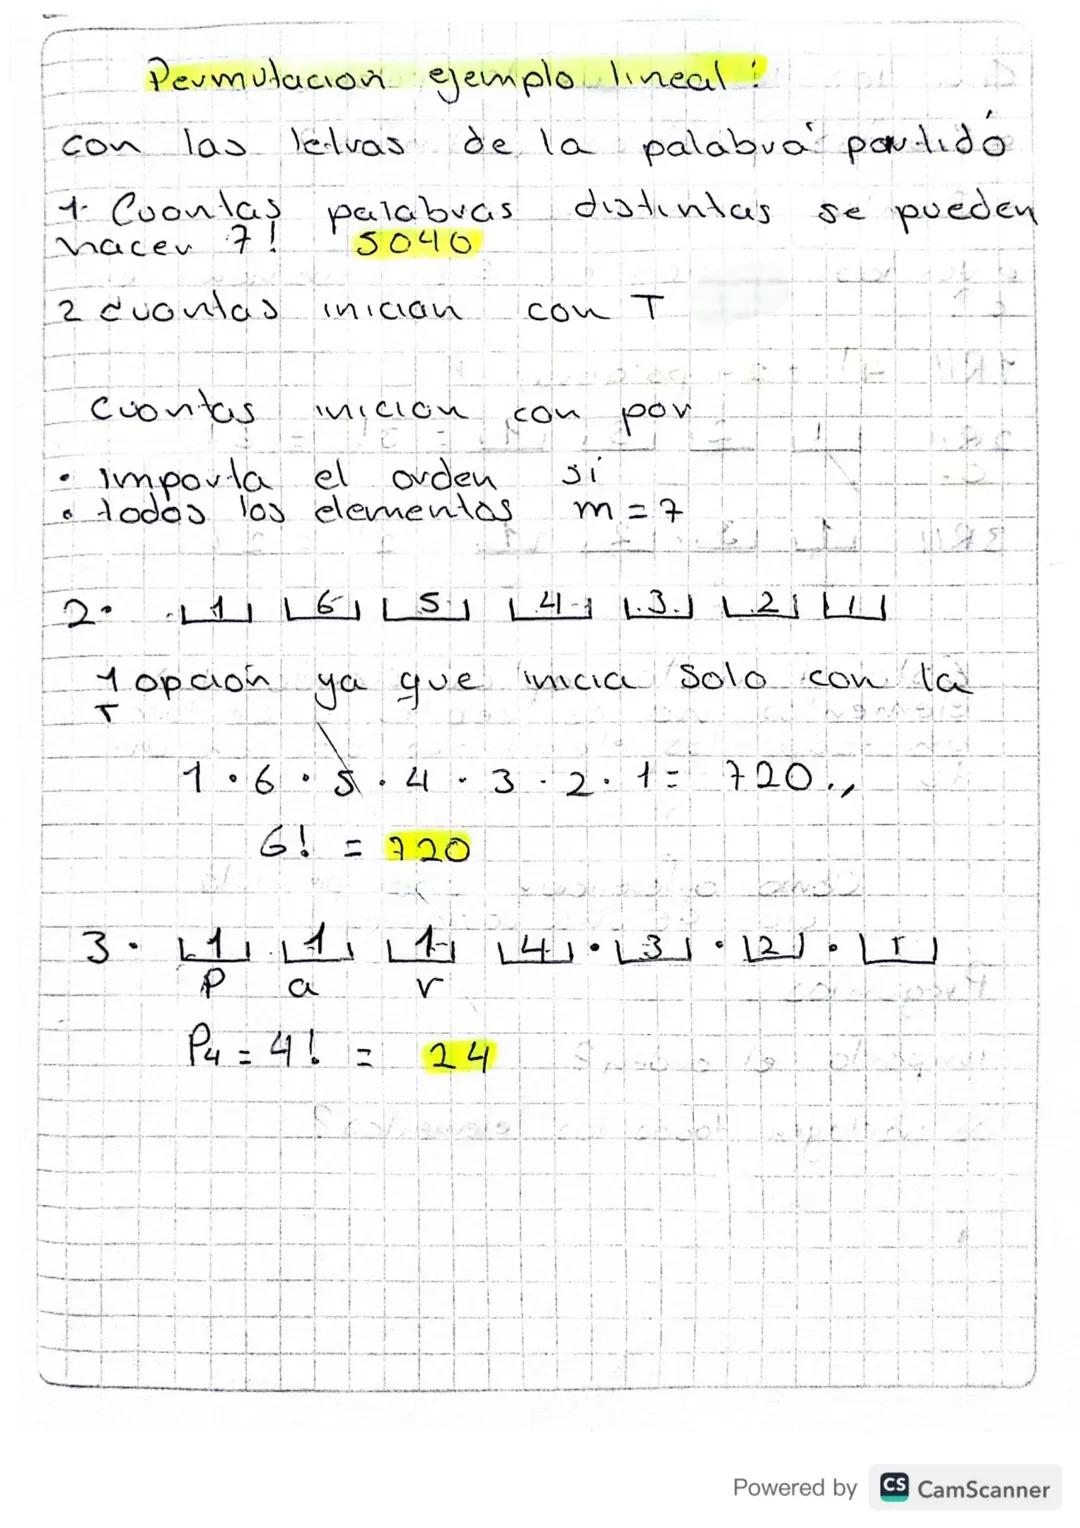 Permutacion ejemplo lineal:
con las letras de la palabra partido
1. Cuantas palabras distintas se pueden
hacer 7! 5040
2 cuantas inician con T
Cuantas inician con par
• importa el orden si
• todos los elementos m = 7
2. 1 6 5 4 3 2 1
1 opción ya que inicia solo con la
T
1 · 6 · 5 · 4 · 3 · 2 · 1 = 720
6! = 720
3. 1 1 1 4 · 3 · 2 · 1
P a r
P4 = 4! = 24
Powered by CS CamScanner